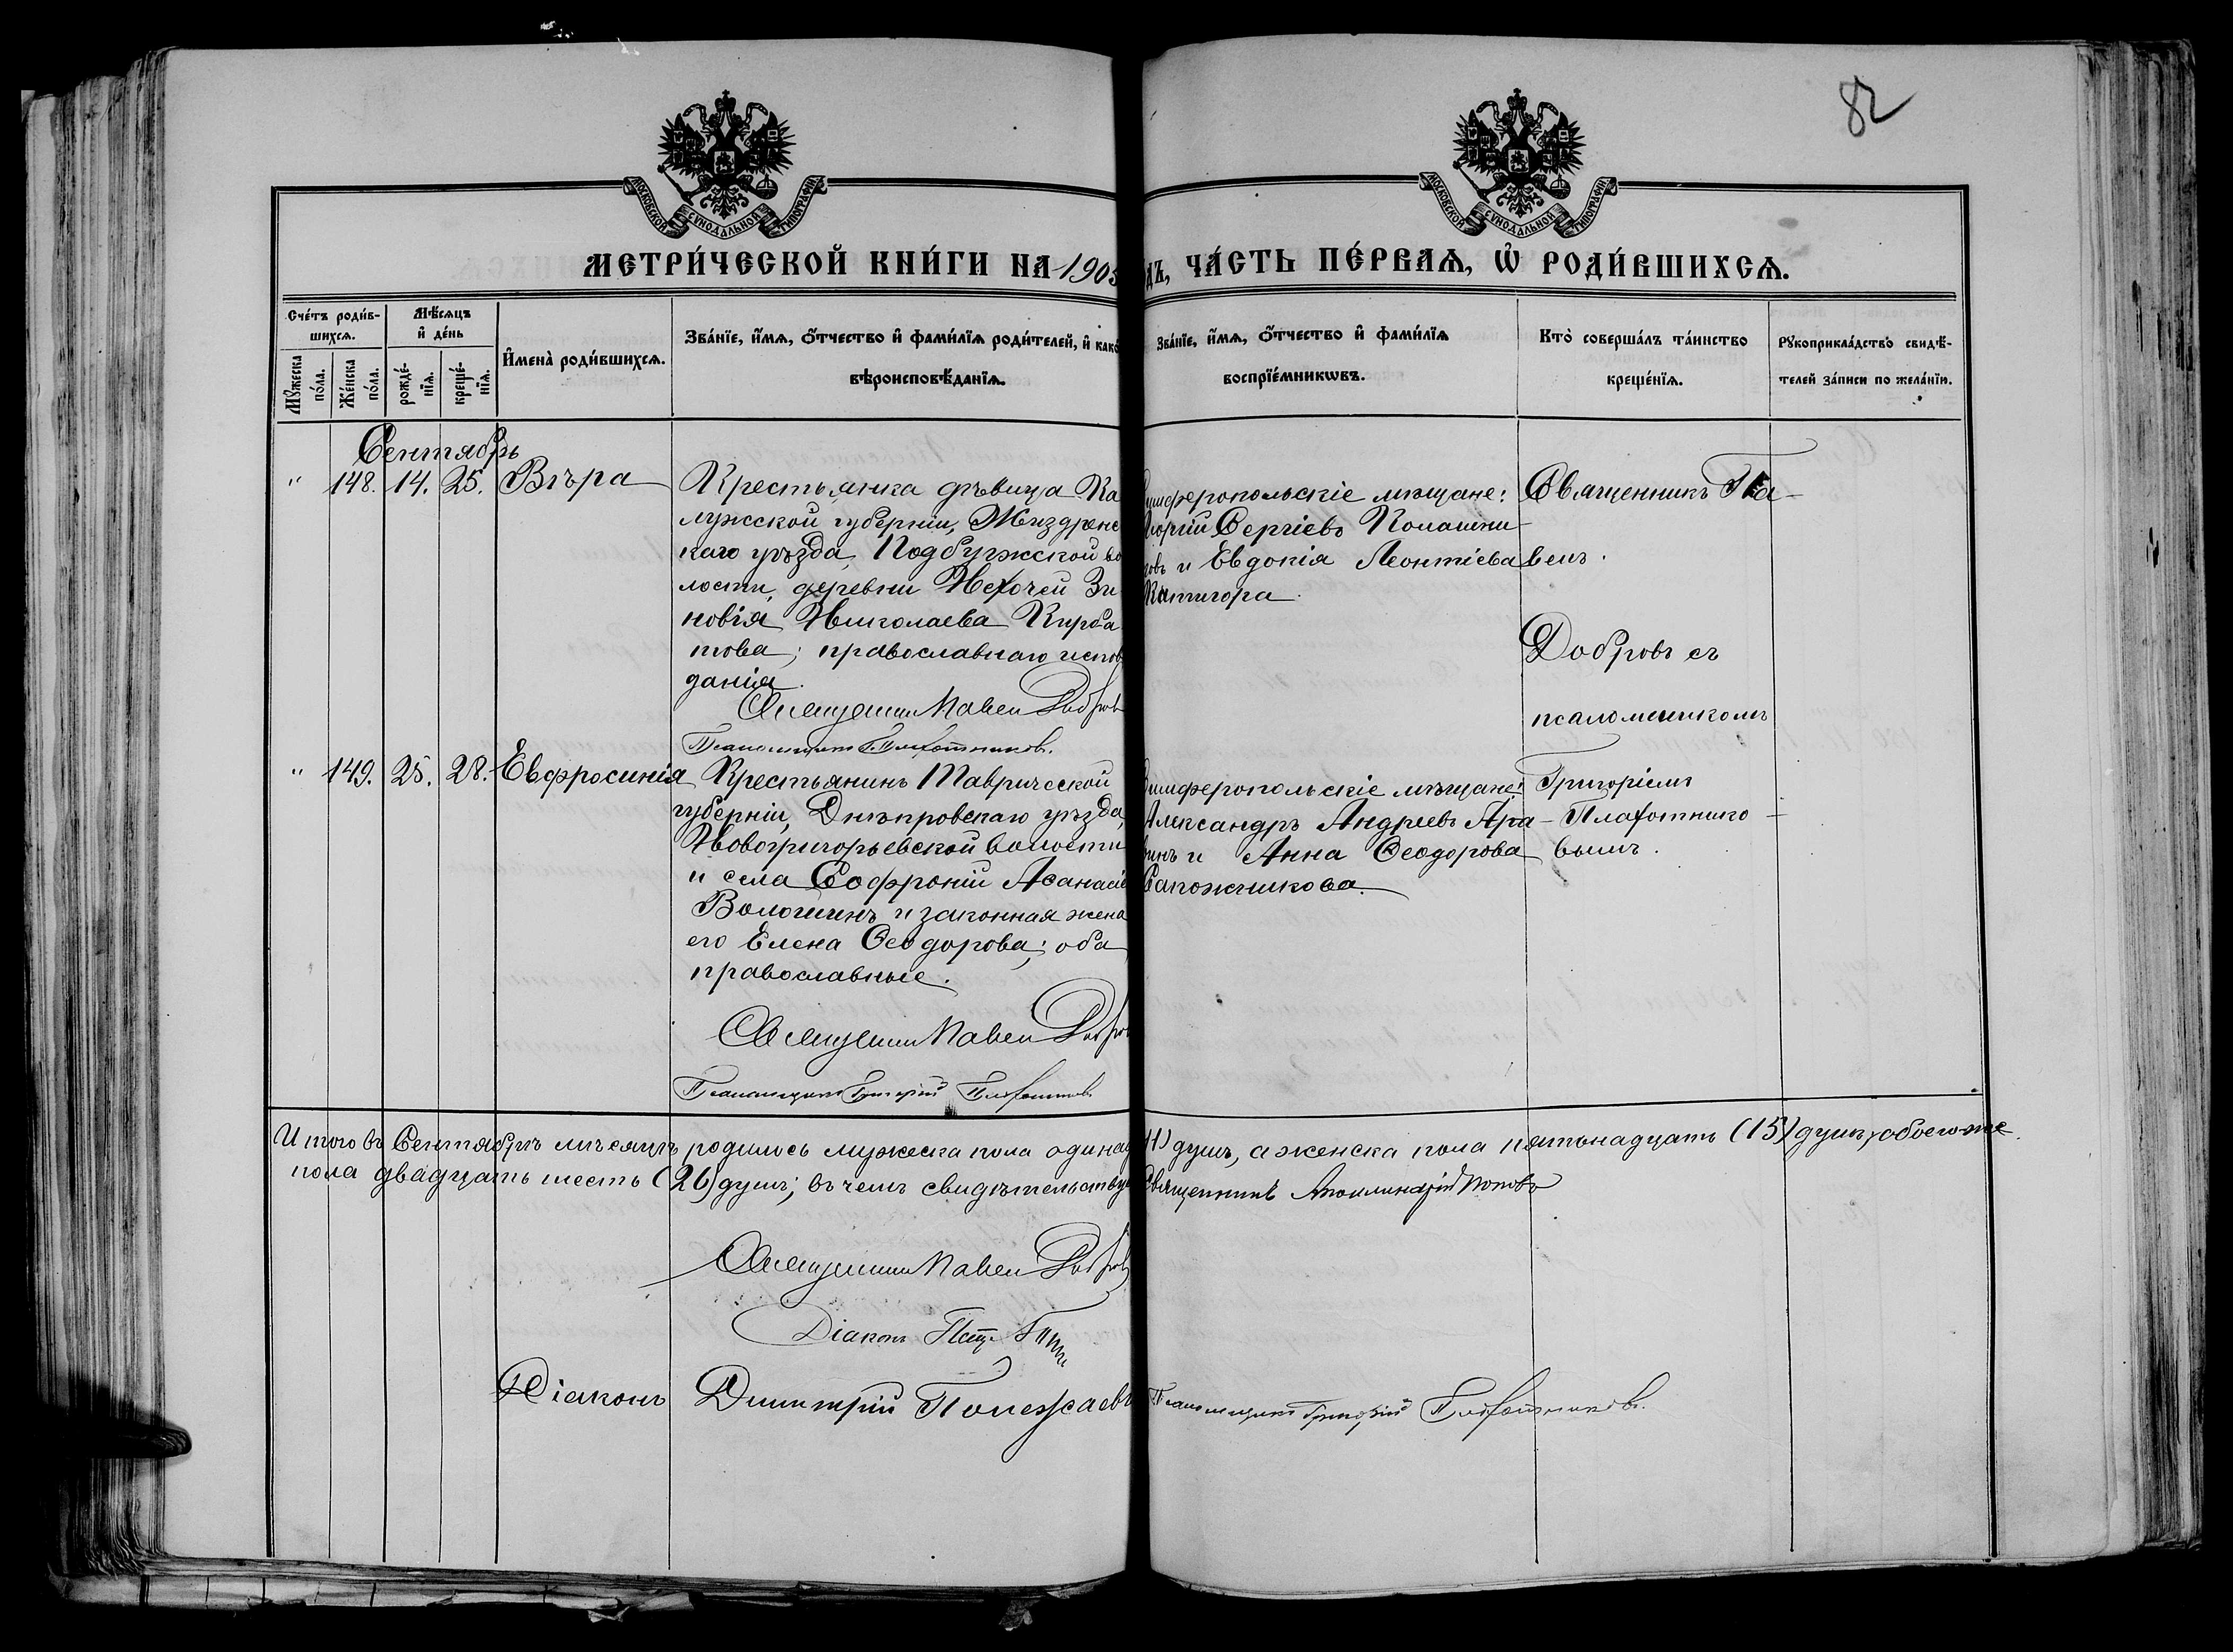 82
МОСКОВСКОЙ СѴНОДАЛЬНОЙ ТИПОГРАФІИ
МОСКОВСКОЙ СѴНОДАЛЬНОЙ ТИПОГРАФІИ
МЕТРИ́ЧЕСКОЙ КНИ́ГИ НА 1905
ДЪ, ЧА́СТЬ ПЕ́РВАѦ, Ѡ҆ РОДИ́ВШИХСѦ.
Сче́тъ роди́в-
шихсѧ.
Мꙋжеска
по́ла.
Же́нска
по́ла.
Мѣ́сѧцъ
и҆ де́нь
рожде́-
нїѧ.
креще́-
нїѧ.
И҆мена̀ роди́вшихсѧ.
Зва́нїе, и҆́мѧ, ѻ҆́тчество и҆ фами́лїѧ роди́телей, и҆ како
вѣроисповѣ́данїѧ.
Зва́нїе, и҆́мѧ, ѻ҆́тчество и҆ фами́лїѧ
воспрїе́мникѡвъ.
Кто̀ соверша́лъ та́инство
креще́нїѧ.
Рꙋкоприкла́дство свидѣ́-
телей за́писи по жела́нїю.
Сентябрь
" 148. 14. 25. Вѣра
Крестьянка дѣвица Ка
лужской губерніи, Жиздренс
каго уѣзда, Подбужской во
лости, деревни Нехочей Зи
новія Николаева Курба
това; православнаго испов
данія.
Священник Павел Добров
Псаломщикъ Г. Плахотниковъ.
имферопольскіе мѣщане:
еоргій Сергіевъ Колашни
ковъ и Евдокія Леонтіева
Катигора.
Священникъ Па-
велъ.
Добровъ съ
псаломщикомъ
Григоріемъ
Плахотнико-
вымъ.
" 149. 25. 28. Евфросинія
Крестьянинъ Таврической
губерніи, Днѣпровскаго уѣзда,
Новогригорьевской волости
и села Софроній Аѳанасіе
Волошинъ и законная жена
его Елена Ѳеодорова; оба
православные.
Священник Павел Добров
Псаломщикъ Григорій Плахотниковъ
имферопольскіе мѣщане:
Александръ Андреевъ Ара-
кинъ и Анна Ѳеодорова
Сапожникова.
Итого въ Сентябрѣ мѣсяцѣ родилось мужеска пола одинад
11) душъ, а женска пола пятьнадцать (15) душъ, обоего же
пола двадцать шесть (26) душъ; въ чемъ свидѣтельствуе
Священникъ Аполлинарій Поповъ
Священник Павел Добров
Діаконъ
Діаконъ Димитрій Полежаевъ
Псаломщикъ Григорій Плахотниковъ.